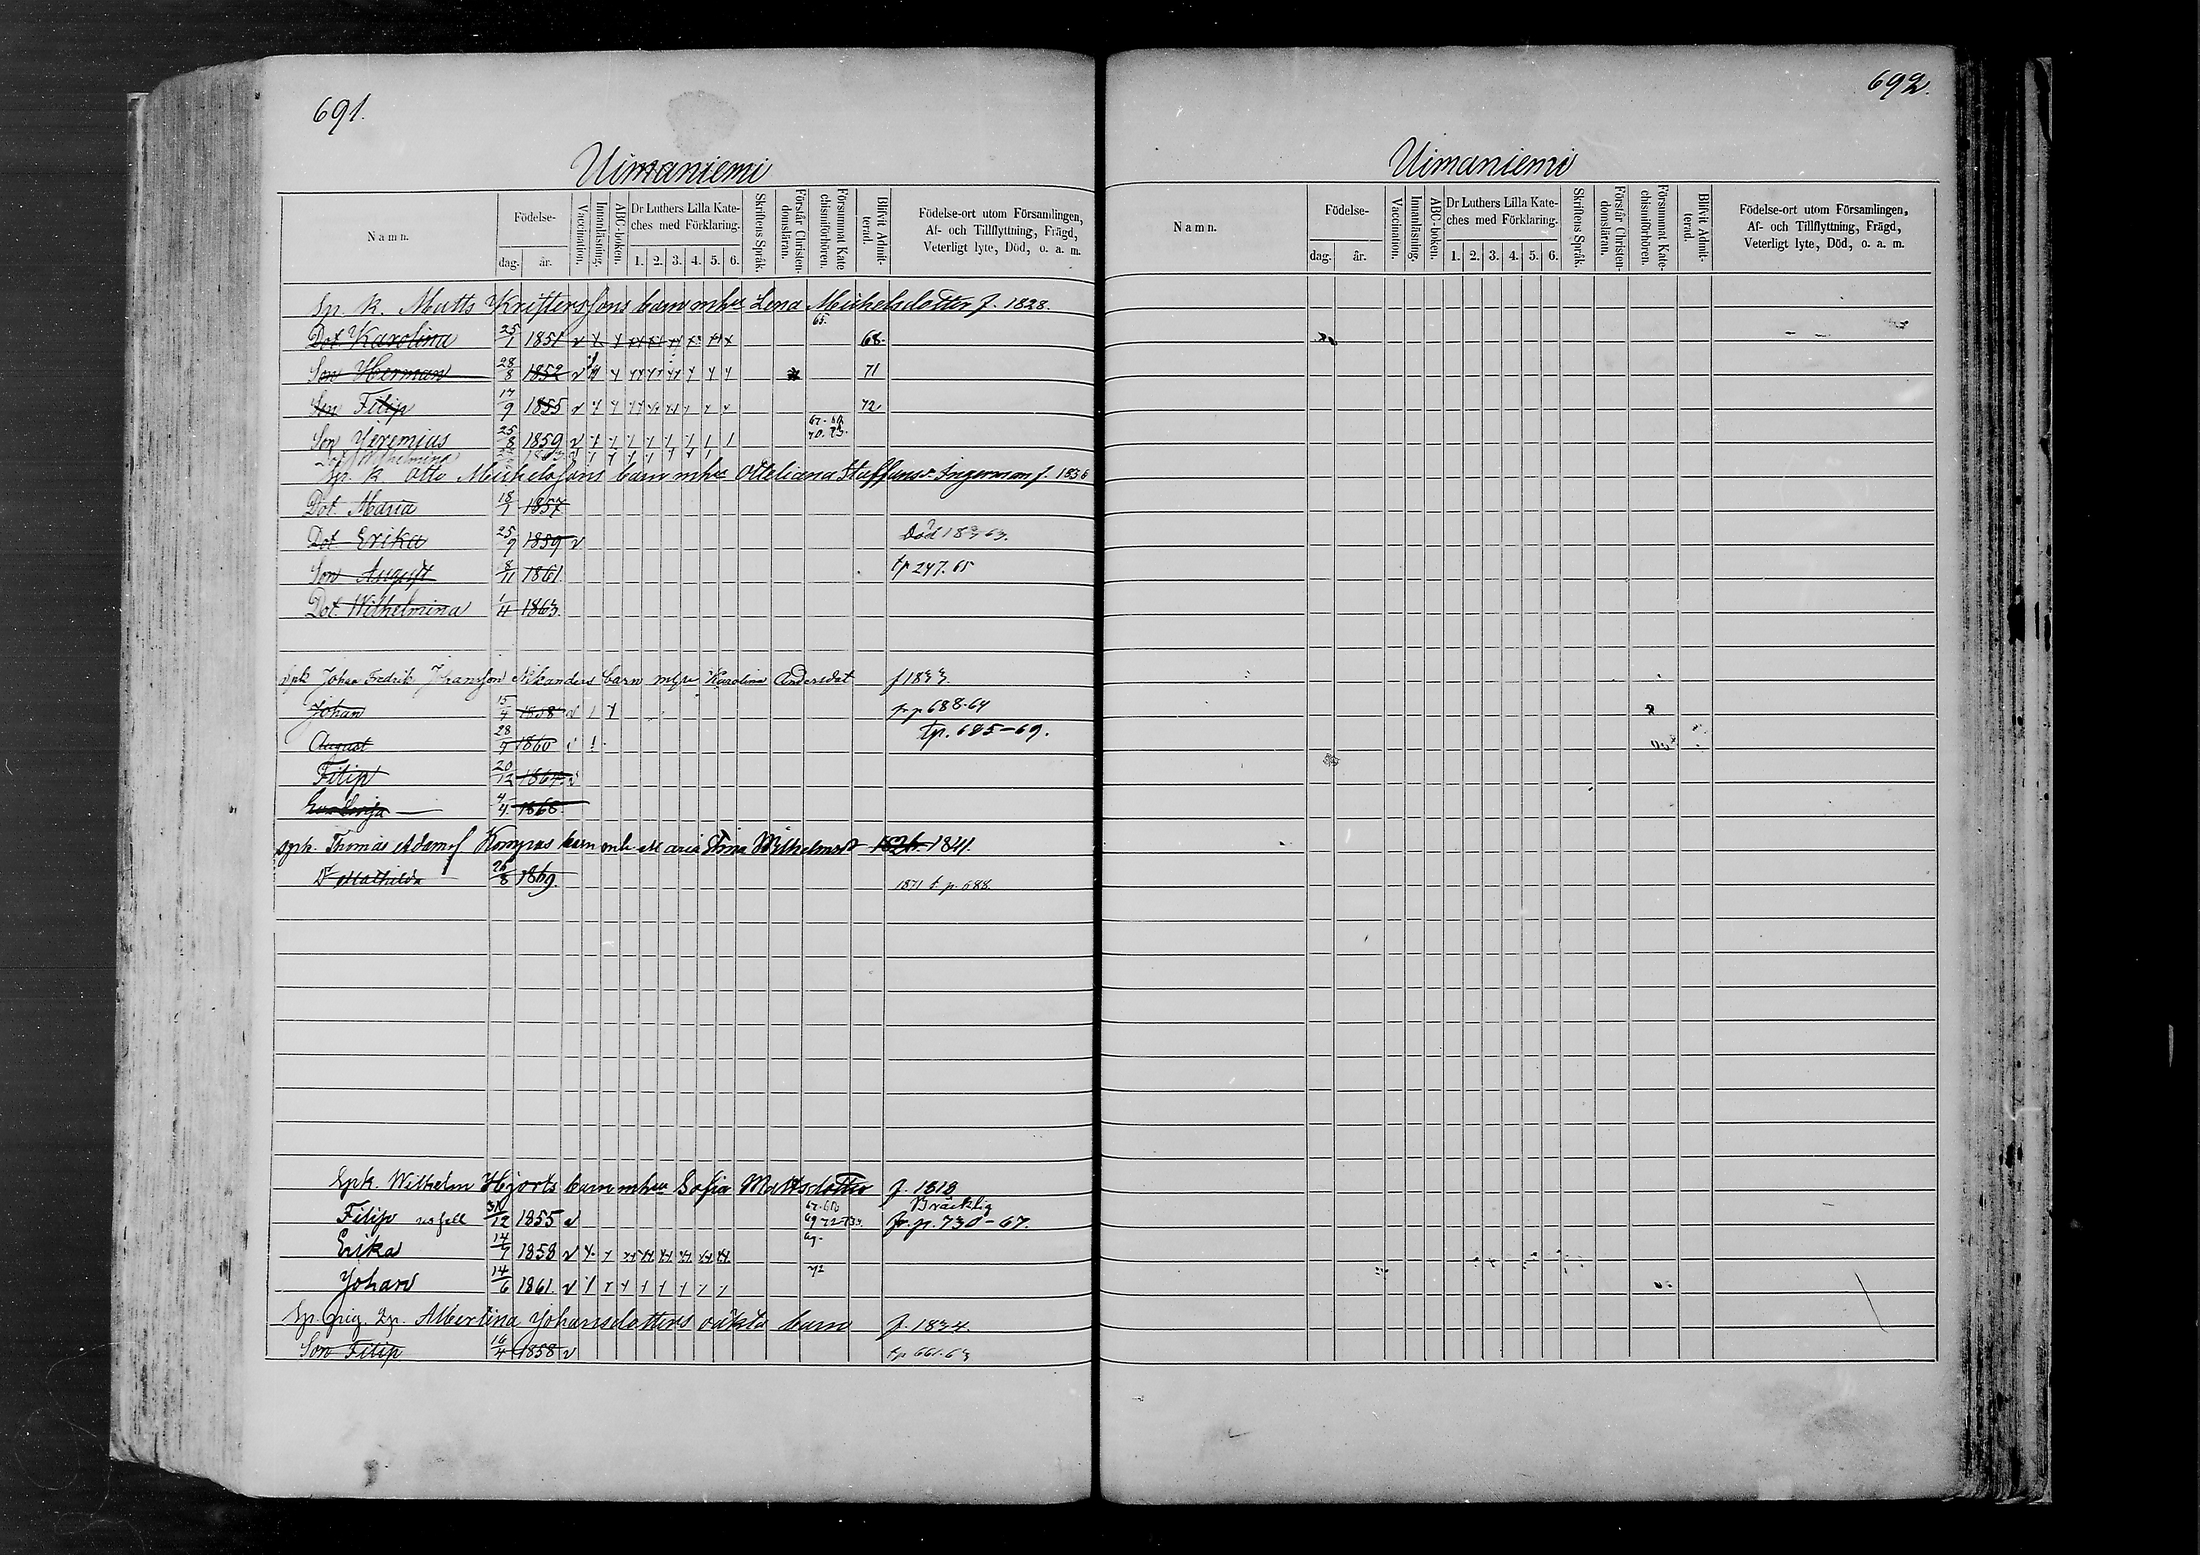 691.
Uimaniemi
Namn.
Födelse-
dag. år.
Vaccination.
Innanläsning.
ABC-boken.
Dr Luthers Lilla Kate-
ches med Förklaring.
1. 2. 3. 4. 5. 6.
Skriftens Språk.
Förstår Christen-
domsläran.
Försummat Kate
chismiförhören.
Blifvit Admit-
terad.
Födelse-ort utom Församlingen,
Af- och Tillflyttning, Frägd,
Veterligt lyte, Död, o. a. m.
Sp. k. Matts Kristerssons barn mhu Lena Michelsdotter f. 1828.
Dot. Karolina 25/1 1851 v 65. 68.
Son Herman 28/8 1852 v 71
Son Filip 17/9 1855 v 72
Son Jeremias 25/8 1859 v
Dot. Wilhelmina
Sp. k. Otto Michelssons barn mhu Otteliana Staffansd. Ingerman f. 1836
Dot. Maria 18/7 1857
Dot. Erika 25/9 1859 v Död
Son August 8/11 1861. tp 247. 65
Dot. Wilhelmina 1/11 1863.
spk Johan Fredrik Johansson Nikanders barn m hu Karolina Andersdot f 1833
Johan 15/4 1858 v fr p 688-64
August 28/9 1860 tp. 685-69.
Filip 20/12 1864 v
4/4 1868.
spk. Thomas Adamsf Kompas barn mh Maria Stina Wilhelmsd 1826. 1841.
Dr Mathilda 26/8 1869. 1871 t. p. 688
Spk. Wilhelm Hjorts barn mhu Sofia Mattsdotter f. 1818
Filip 31/12 1855 v Bräcklig fr. p. 730-67.
Erika 14/7 1858 v 69.
Johan 14/6 1861. v 72
Sp. pig. Sp. Albertina Johansdotters oäkta barn f. 1834.
Son Filip 16/4 1858 v tp 661. 63
692.
Uimaniemi
Namn.
Födelse-
dag. år.
Vaccination.
Innanläsning.
ABC-boken.
Dr Luthers Lilla Kate-
ches med Förklaring.
1. 2. 3. 4. 5. 6.
Skriftens Språk.
Förstår Christen-
domsläran.
Försummat Kate-
chismiförhören.
Blifvit Admit-
terad.
Födelse-ort utom Församlingen,
Af- och Tillflyttning, Frägd,
Veterligt lyte, Död, o. a. m.